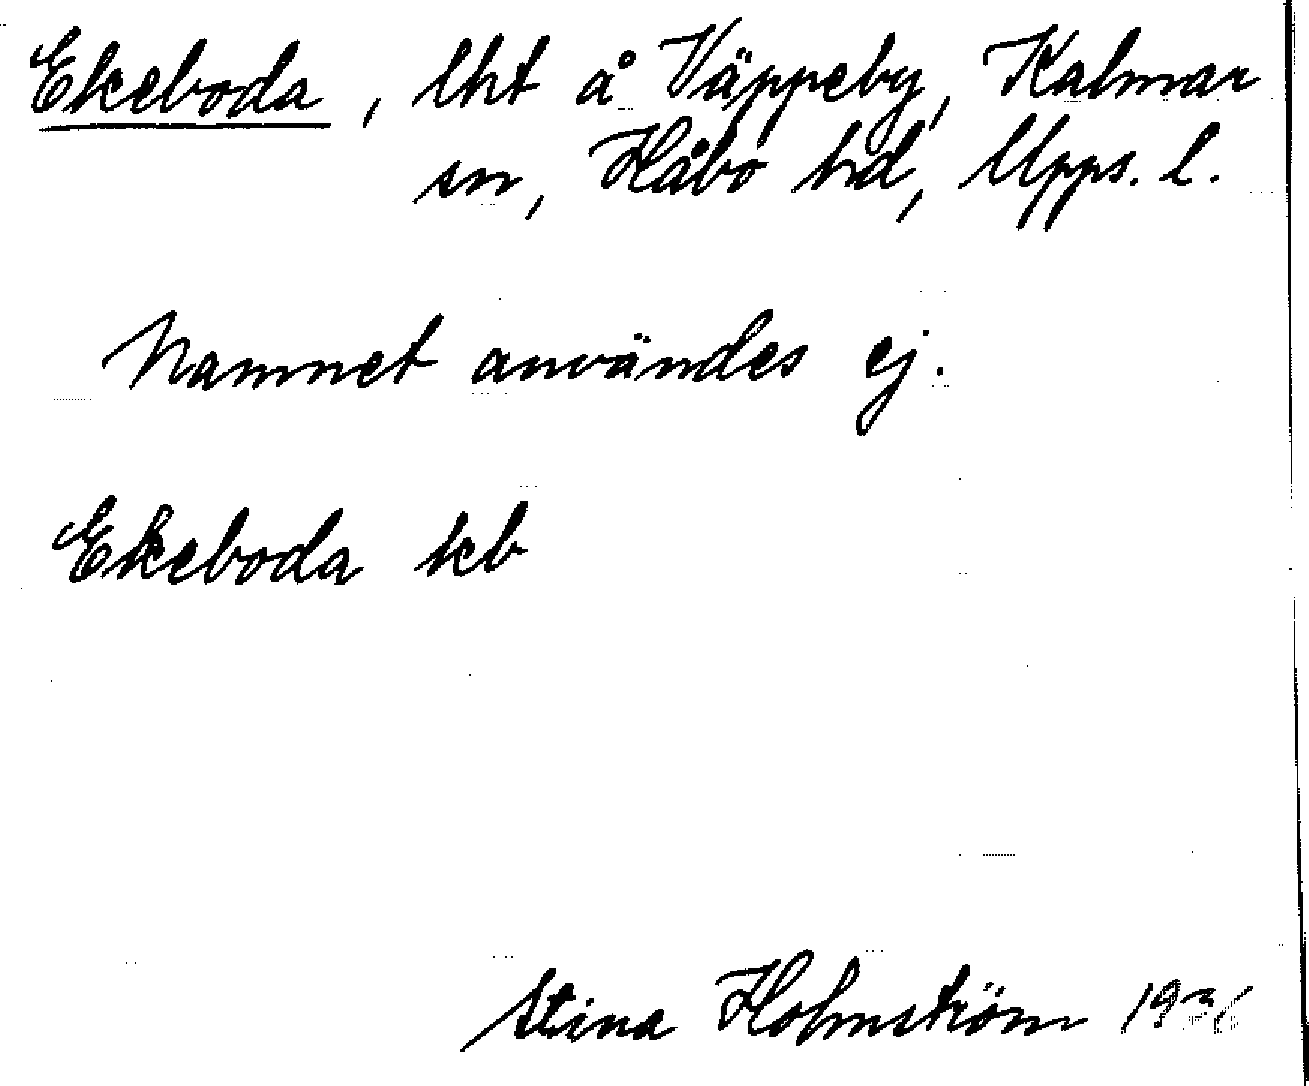 Ekeboda, lht å Väppeby, Kalmar
sn, Håbo hd, Upps. l.
Namnet användes ej.
Ekeboda kb
Stina Holmström 1936